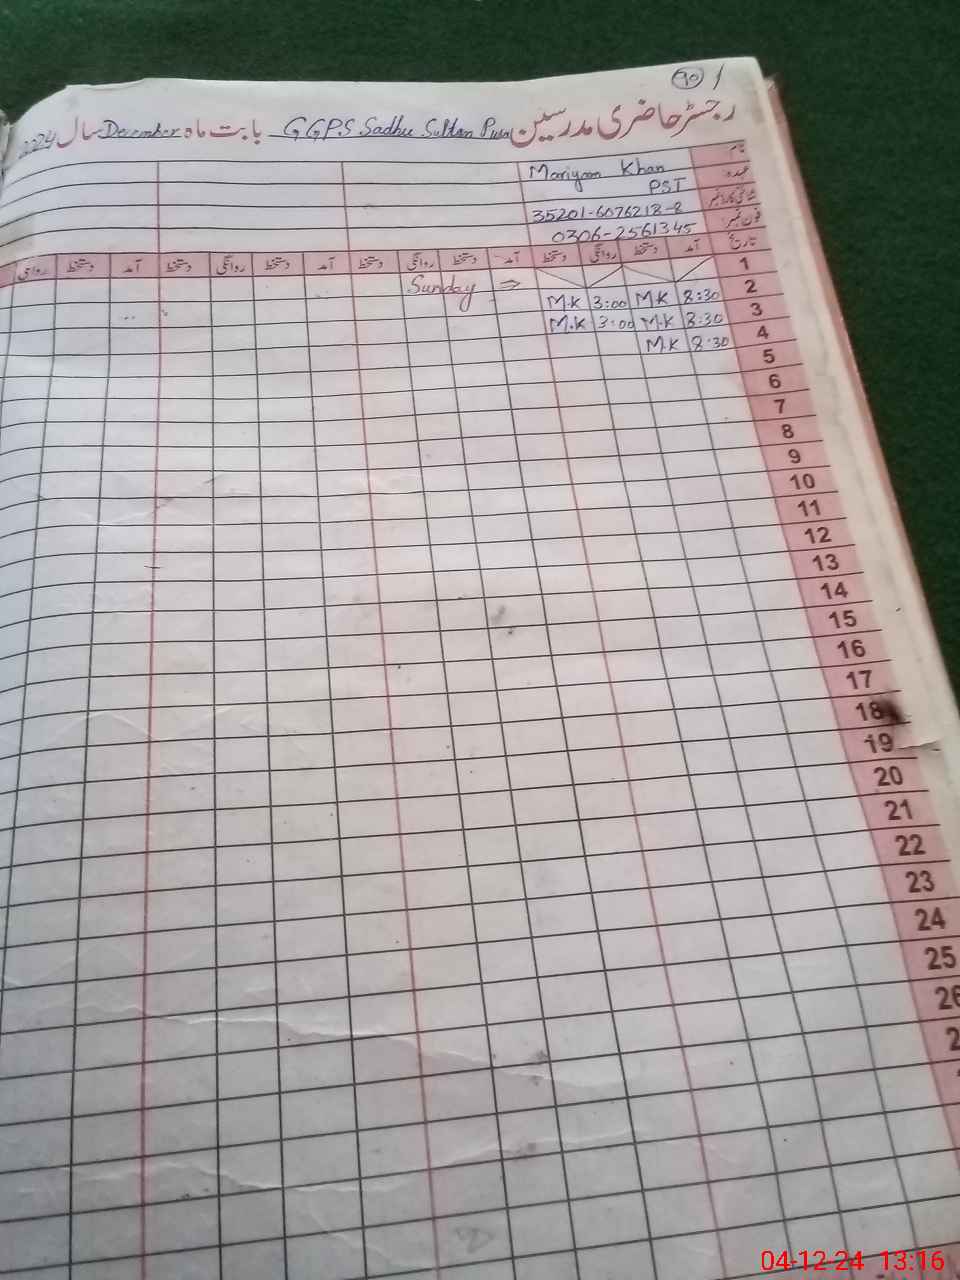 90
رجسٹر حاضری مدرسین GGPS Sadhu Sultan Pura بابت ماہ December سال 2024
نام Mariyam Khan
عہدہ PST
شناختی کارڈ نمبر 35201-6076218-8
فون نمبر 0306-2561345
تاریخ آمد دستخط روانگی دستخط آمد دستخط روانگی دستخط آمد دستخط روانگی دستخط آمد دستخط روانگی
1 Sunday ⇒
2 8:30 M.K 3:00 M.K
3 8:30 M.K 3:00 M.K
4 8:30 M.K
5
6
7
8
9
10
11
12
13
14
15
16
17
18
19
20
21
22
23
24
25
26
04-12-24 13:16